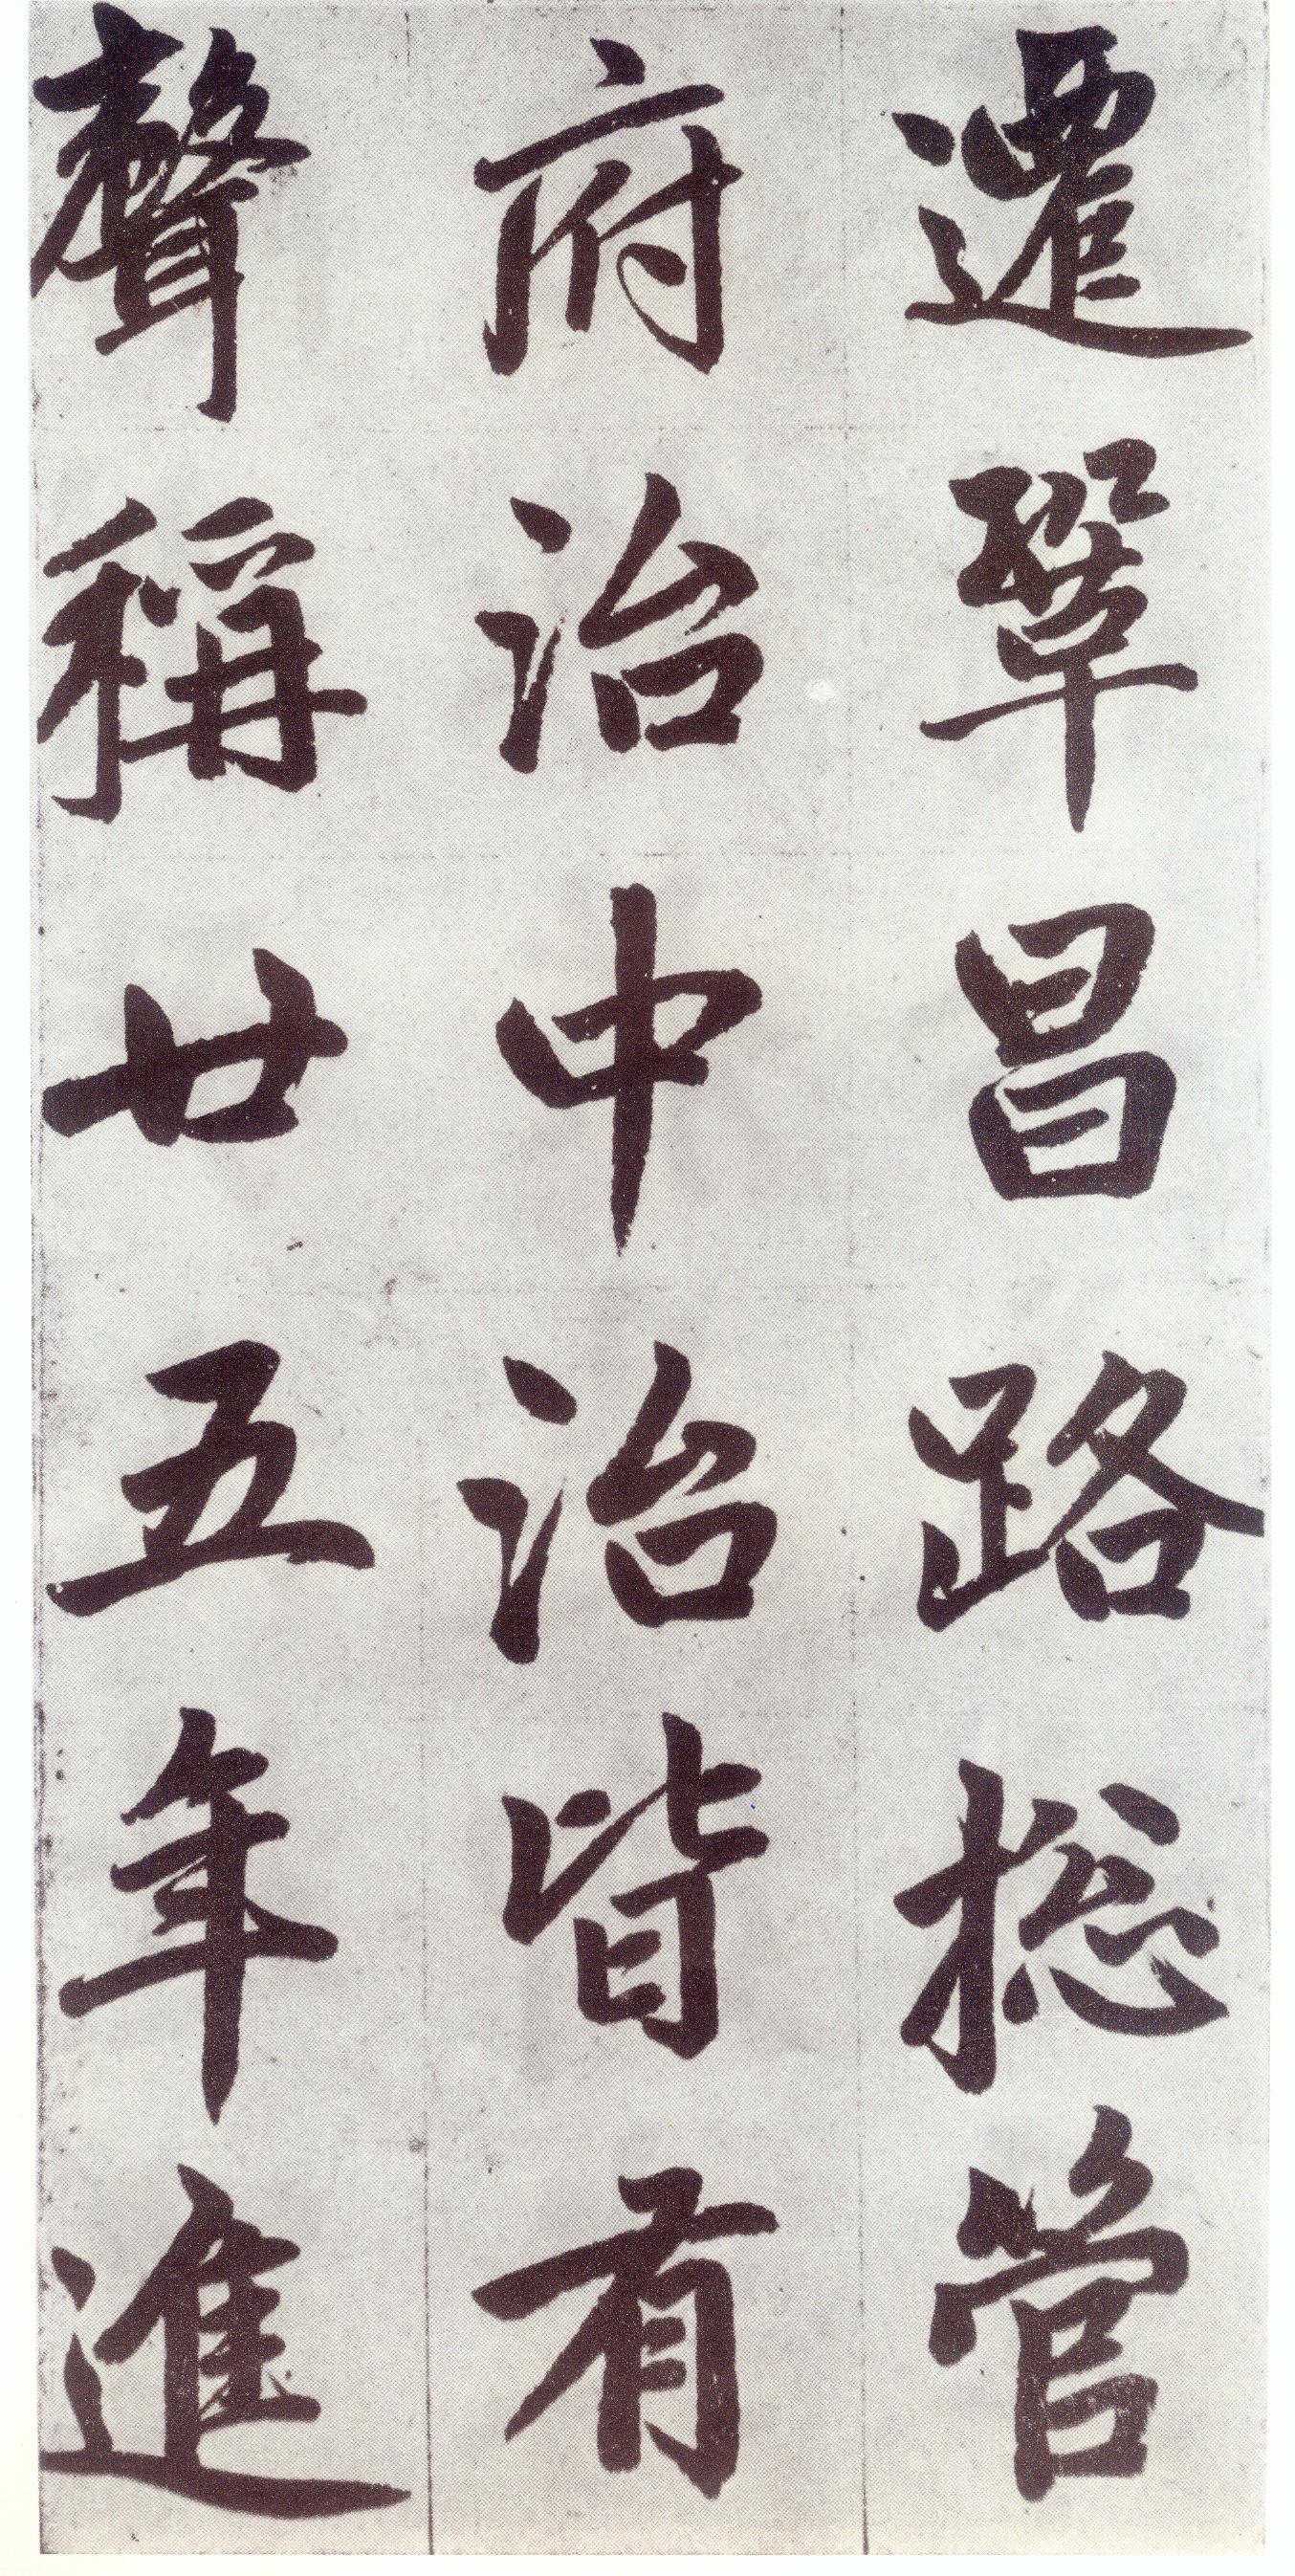 遷鞏昌路捴管
府治中治皆有
聲稱廿五年進